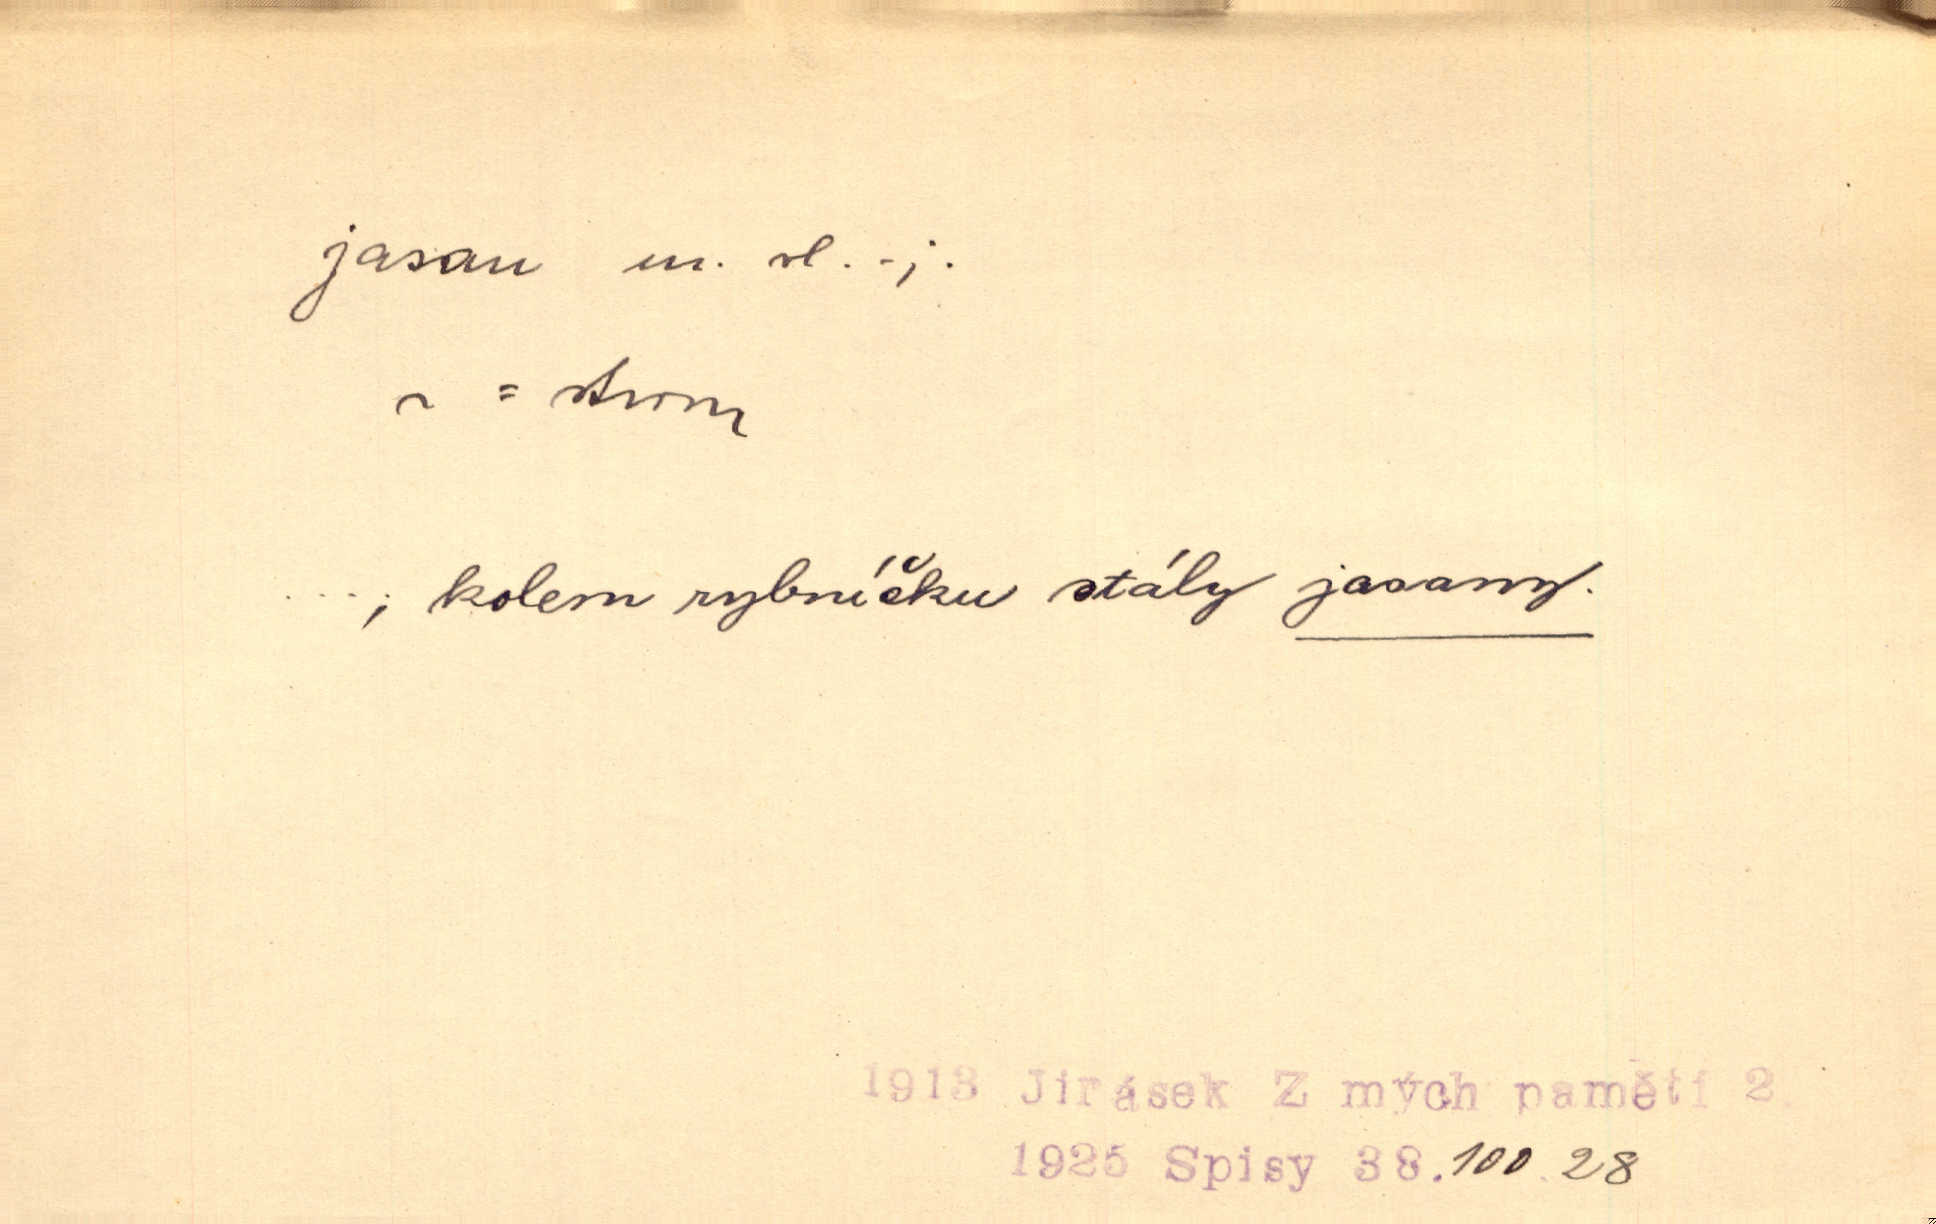 jasan m. vl. -j.
~ = strom
...; kolem rybníčku stály jasany.
1913 Jirásek Z mých pamětí 2.
1925 Spisy 38.100.28